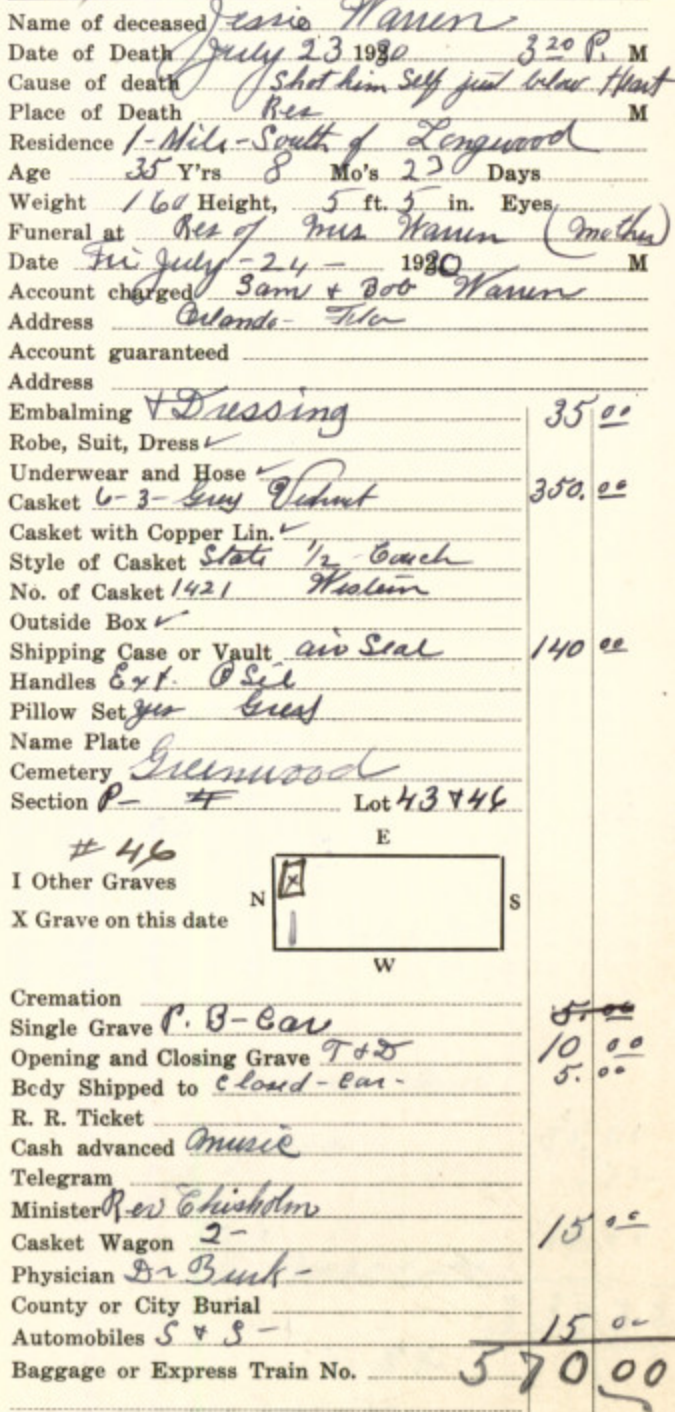 Name of deceased Jessie Warren
Date of Death July 23 1930 3 20 P. M
Cause of death Shot him Self just below Heart
Place of Death Res M
Residence 1-Mile-South of Longwood
Age 35 Y'rs 8 Mo's 23 Days
Weight 160 Height, 5 ft. 5 in. Eyes
Funeral at Res of Mrs Warren (Mother)
Date Fri July-24- 1930 M
Account charged Sam & Bob Warren
Address Orlando- Fla
Account guaranteed
Address
Embalming & Dressing 35 00
Robe, Suit, Dress ✓
Underwear and Hose ✓
Casket 6-3- Grey Velvet 350. 00
Casket with Copper Lin. ✓
Style of Casket State 1/2 Couch
No. of Casket 1421 Western
Outside Box ✓
Shipping Case or Vault air Seal 140 00
Handles Ext. Sil
Pillow Set yes
Name Plate
Cemetery Greenwood
Section P- # Lot 43 & 46
E
# 46
I Other Graves
N X S
X Grave on this date
W
Cremation
5. 00
Single Grave P. B-Car
Opening and Closing Grave T & D 10 00
Body Shipped to Closed-Car- 5. 00
R. R. Ticket
Cash advanced Music
Telegram
Minister Rev Chisholm
Casket Wagon 2- 15 00
Physician Dr Burk-
County or City Burial
Automobiles S & S- 15 00
Baggage or Express Train No. 570 00